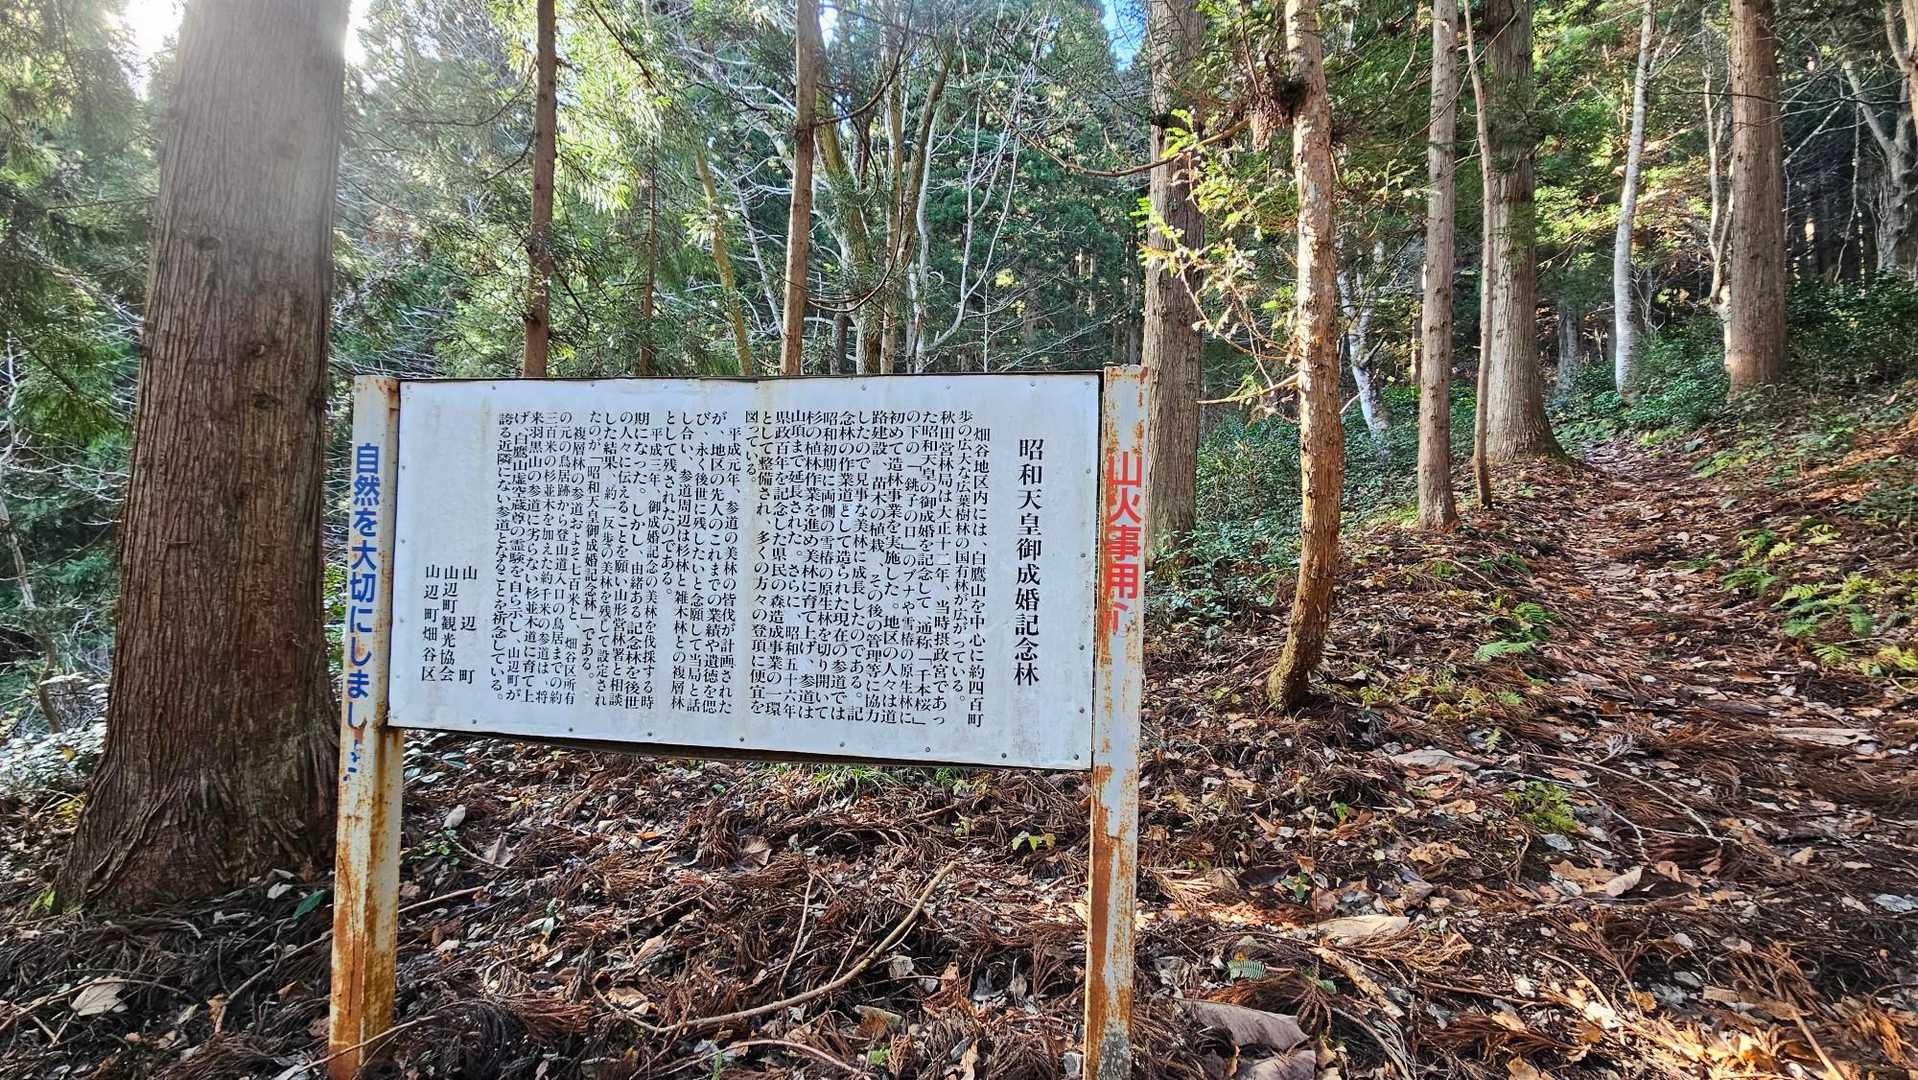 昭和天皇御成婚記念林
畑谷地区内には、白鷹山を中心に約四百町
歩の広大な広葉樹林の国有林が広がっている。
秋田営林局は大正十二年、当時摂政宮であっ
た昭和天皇の御成婚を記念して、通称「千本桜」
の下の「銚子の口」のブナや雪椿の原生林に
初めて造林事業を実施した。地区の人々は道
路建設、苗木の植栽、その後の管理等に協力
したので見事な美林に成長したのである。記
念林の作業道として造られた現在の参道では
昭和初期に両側の雪椿の原生林を切り開いて
杉の植林作業を進め美林に育て上げ、参道は
山頂まで延長された。さらに、昭和五十六年
県政百年を記念した県民の森造成事業の一環
として整備され、多くの方々の登頂に便宜を
図っている。
平成元年、参道の美林の皆伐が計画された
が、地区の先人のこれまでの業績や遺徳を偲
び、永く後世に残したいと念願して当局と話
し合い、参道周辺は杉林と雑木林との複層林
として残されたのである。
平成三年、御成婚記念の美林を伐採する時
期になった。しかし、由緒ある記念林を後世
の人々に伝えることを願い山形営林署と相談
した結果、約一反歩の美林を残して設定され
たのが「昭和天皇御成婚記念林」である。
複層林の参道およそ七百米と、畑谷区所有
の元の鳥居跡から登山道入口の鳥居までの約
三百米の杉並木を加えた約一千米の参道は、将
来羽黒山の参道に劣らない杉並木道に育て上
げ、白鷹山虚空蔵尊の霊験を自ら示し、山辺町が
誇る近隣にない参道となることを祈念している。
山辺町
山辺町観光協会
山辺町畑谷区
山火事用心
自然を大切にしましょ